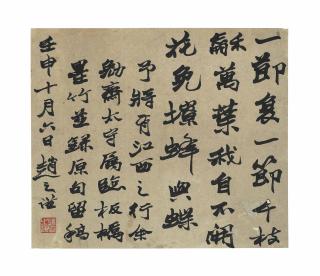 一節復一節千枝
攢萬葉我自不開
花免撩蜂與蝶
予將有江西之行余
勉齋太守屬臨板橋
墨竹並錄原句留稿
壬申十月六日趙之謙